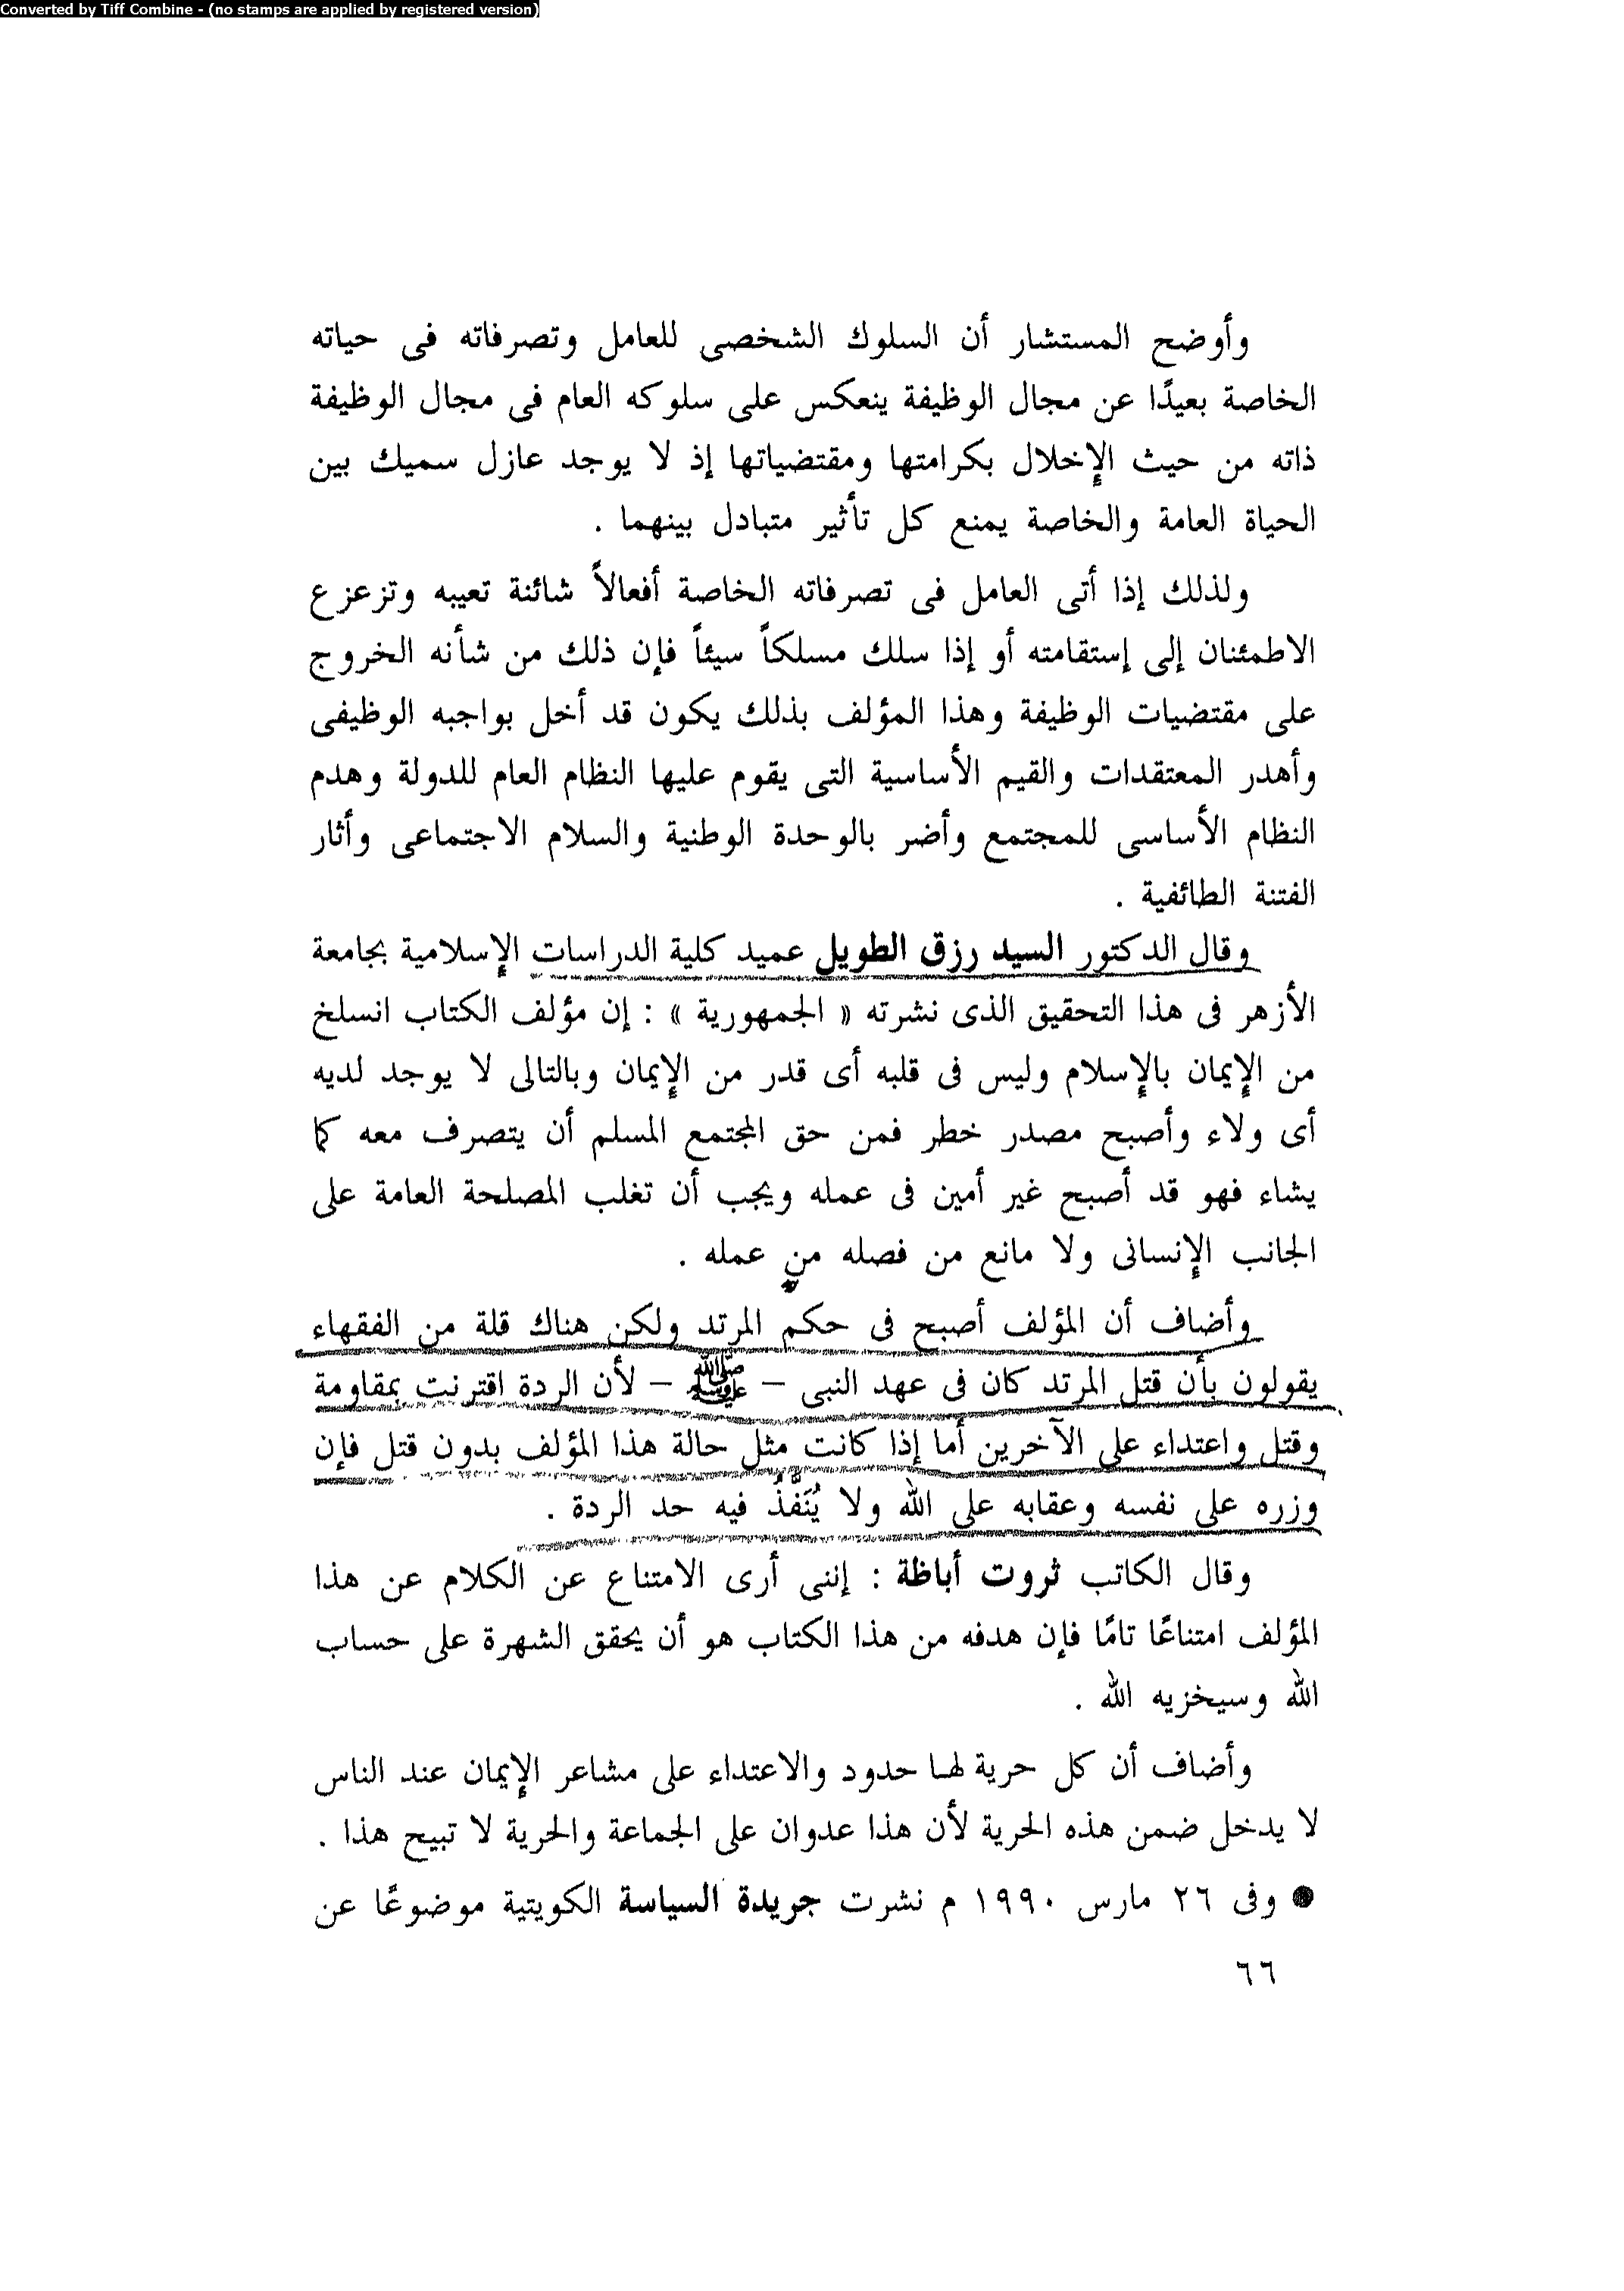 Converted by Tiff Combine - (no stamps are applied by registered version)
وأوضح المستشار أن السلوك الشخصى للعامل وتصرفاته فى حياته
الخاصة بعيدًا عن مجال الوظيفة ينعكس على سلوكه العام فى مجال الوظيفة
ذاته من حيث الإخلال بكرامتها ومقتضياتها إذ لا يوجد عازل سميك بين
الحياة العامة والخاصة يمنع كل تأثير متبادل بينهما .
ولذلك إذا أتى العامل فى تصرفاته الخاصة أفعالاً شائنة تعيبه وتزعزع
الاطمئنان إلى إستقامته أو إذا سلك مسلكاً سيئاً فإن ذلك من شأنه الخروج
على مقتضيات الوظيفة وهذا المؤلف بذلك يكون قد أخل بواجبه الوظيفى
وأهدر المعتقدات والقيم الأساسية التى يقوم عليها النظام العام للدولة وهدم
النظام الأساسى للمجتمع وأضر بالوحدة الوطنية والسلام الاجتماعى وأثار
الفتنة الطائفية .
وقال الدكتور السيد رزق الطويل عميد كلية الدراسات الإسلامية بجامعة
الأزهر فى هذا التحقيق الذى نشرته « الجمهورية » : إن مؤلف الكتاب انسلخ
من الإيمان بالإسلام وليس فى قلبه أى قدر من الإيمان وبالتالى لا يوجد لديه
أى ولاء وأصبح مصدر خطر فمن حق المجتمع المسلم أن يتصرف معه كما
يشاء فهو قد أصبح غير أمين فى عمله ويجب أن تغلب المصلحة العامة على
الجانب الإنسانى ولا مانع من فصله من عمله .
وأضاف أن المؤلف أصبح فى حكم المرتد ولكن هناك قلة من الفقهاء
يقولون بأن قتل المرتد كان فى عهد النبى – ﷺ – لأن الردة اقترنت بمقاومة
وقتل واعتداء على الآخرين أما إذا كانت مثل حالة هذا المؤلف بدون قتل فإن
وزره على نفسه وعقابه على الله ولا يُنَفَّذُ فيه حد الردة .
وقال الكاتب ثروت أباظة : إننى أرى الامتناع عن الكلام عن هذا
المؤلف امتناعًا تامًا فإن هدفه من هذا الكتاب هو أن يحقق الشهرة على حساب
الله وسيخزيه الله .
وأضاف أن كل حرية لها حدود والاعتداء على مشاعر الإيمان عند الناس
لا يدخل ضمن هذه الحرية لأن هذا عدوان على الجماعة والحرية لا تبيح هذا .
● وفى ٢٦ مارس ١٩٩٠ م نشرت جريدة السياسة الكويتية موضوعًا عن
٦٦